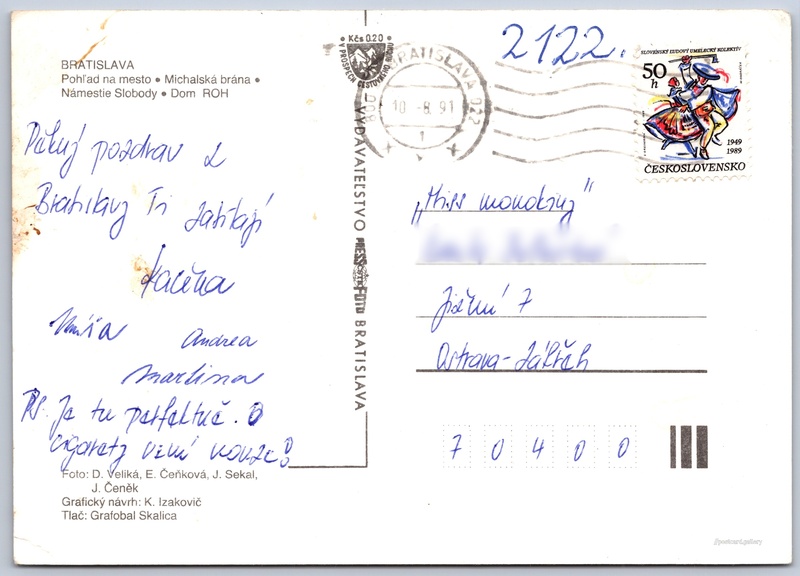 BRATISLAVA
Pohľad na mesto • Michalská brána •
Námestie Slobody • Dom ROH
Pěkný pozdrav z
Bratislavy Ti zasílají
Kačěna
Míša Andrea
Martina
PS. Je tu perfektně. O
cigarety není nouze!
Foto: D. Veliká, E. Čeňková, J. Sekal,
J. Čeněk
Grafický návrh: K. Izakovič
Tlač: Grafobal Skalica
VYDAVATEĽSTVO PRESSFOTO BRATISLAVA
Kčs 0.20
V PROSPECH CESTOVNÉHO RUCHU
BRATISLAVA 022
10.-8.91
1
2122.
SLOVENSKÝ ĽUDOVÝ UMELECKÝ KOLEKTÍV
50
h
1949
1989
ČESKOSLOVENSKO
„Miss monokiny"
Jižní 7
Ostrava-Zábřeh
7 0 4 0 0